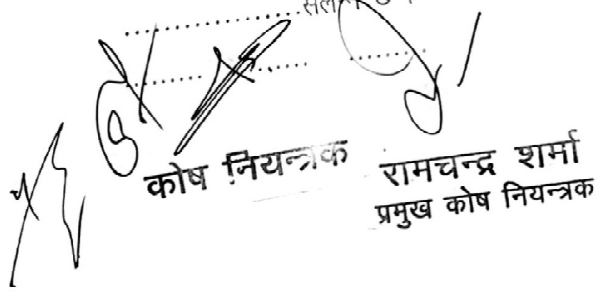 कोष नियन्त्रक
रामचन्द्र शर्मा
प्रमुख कोष नियन्त्रक